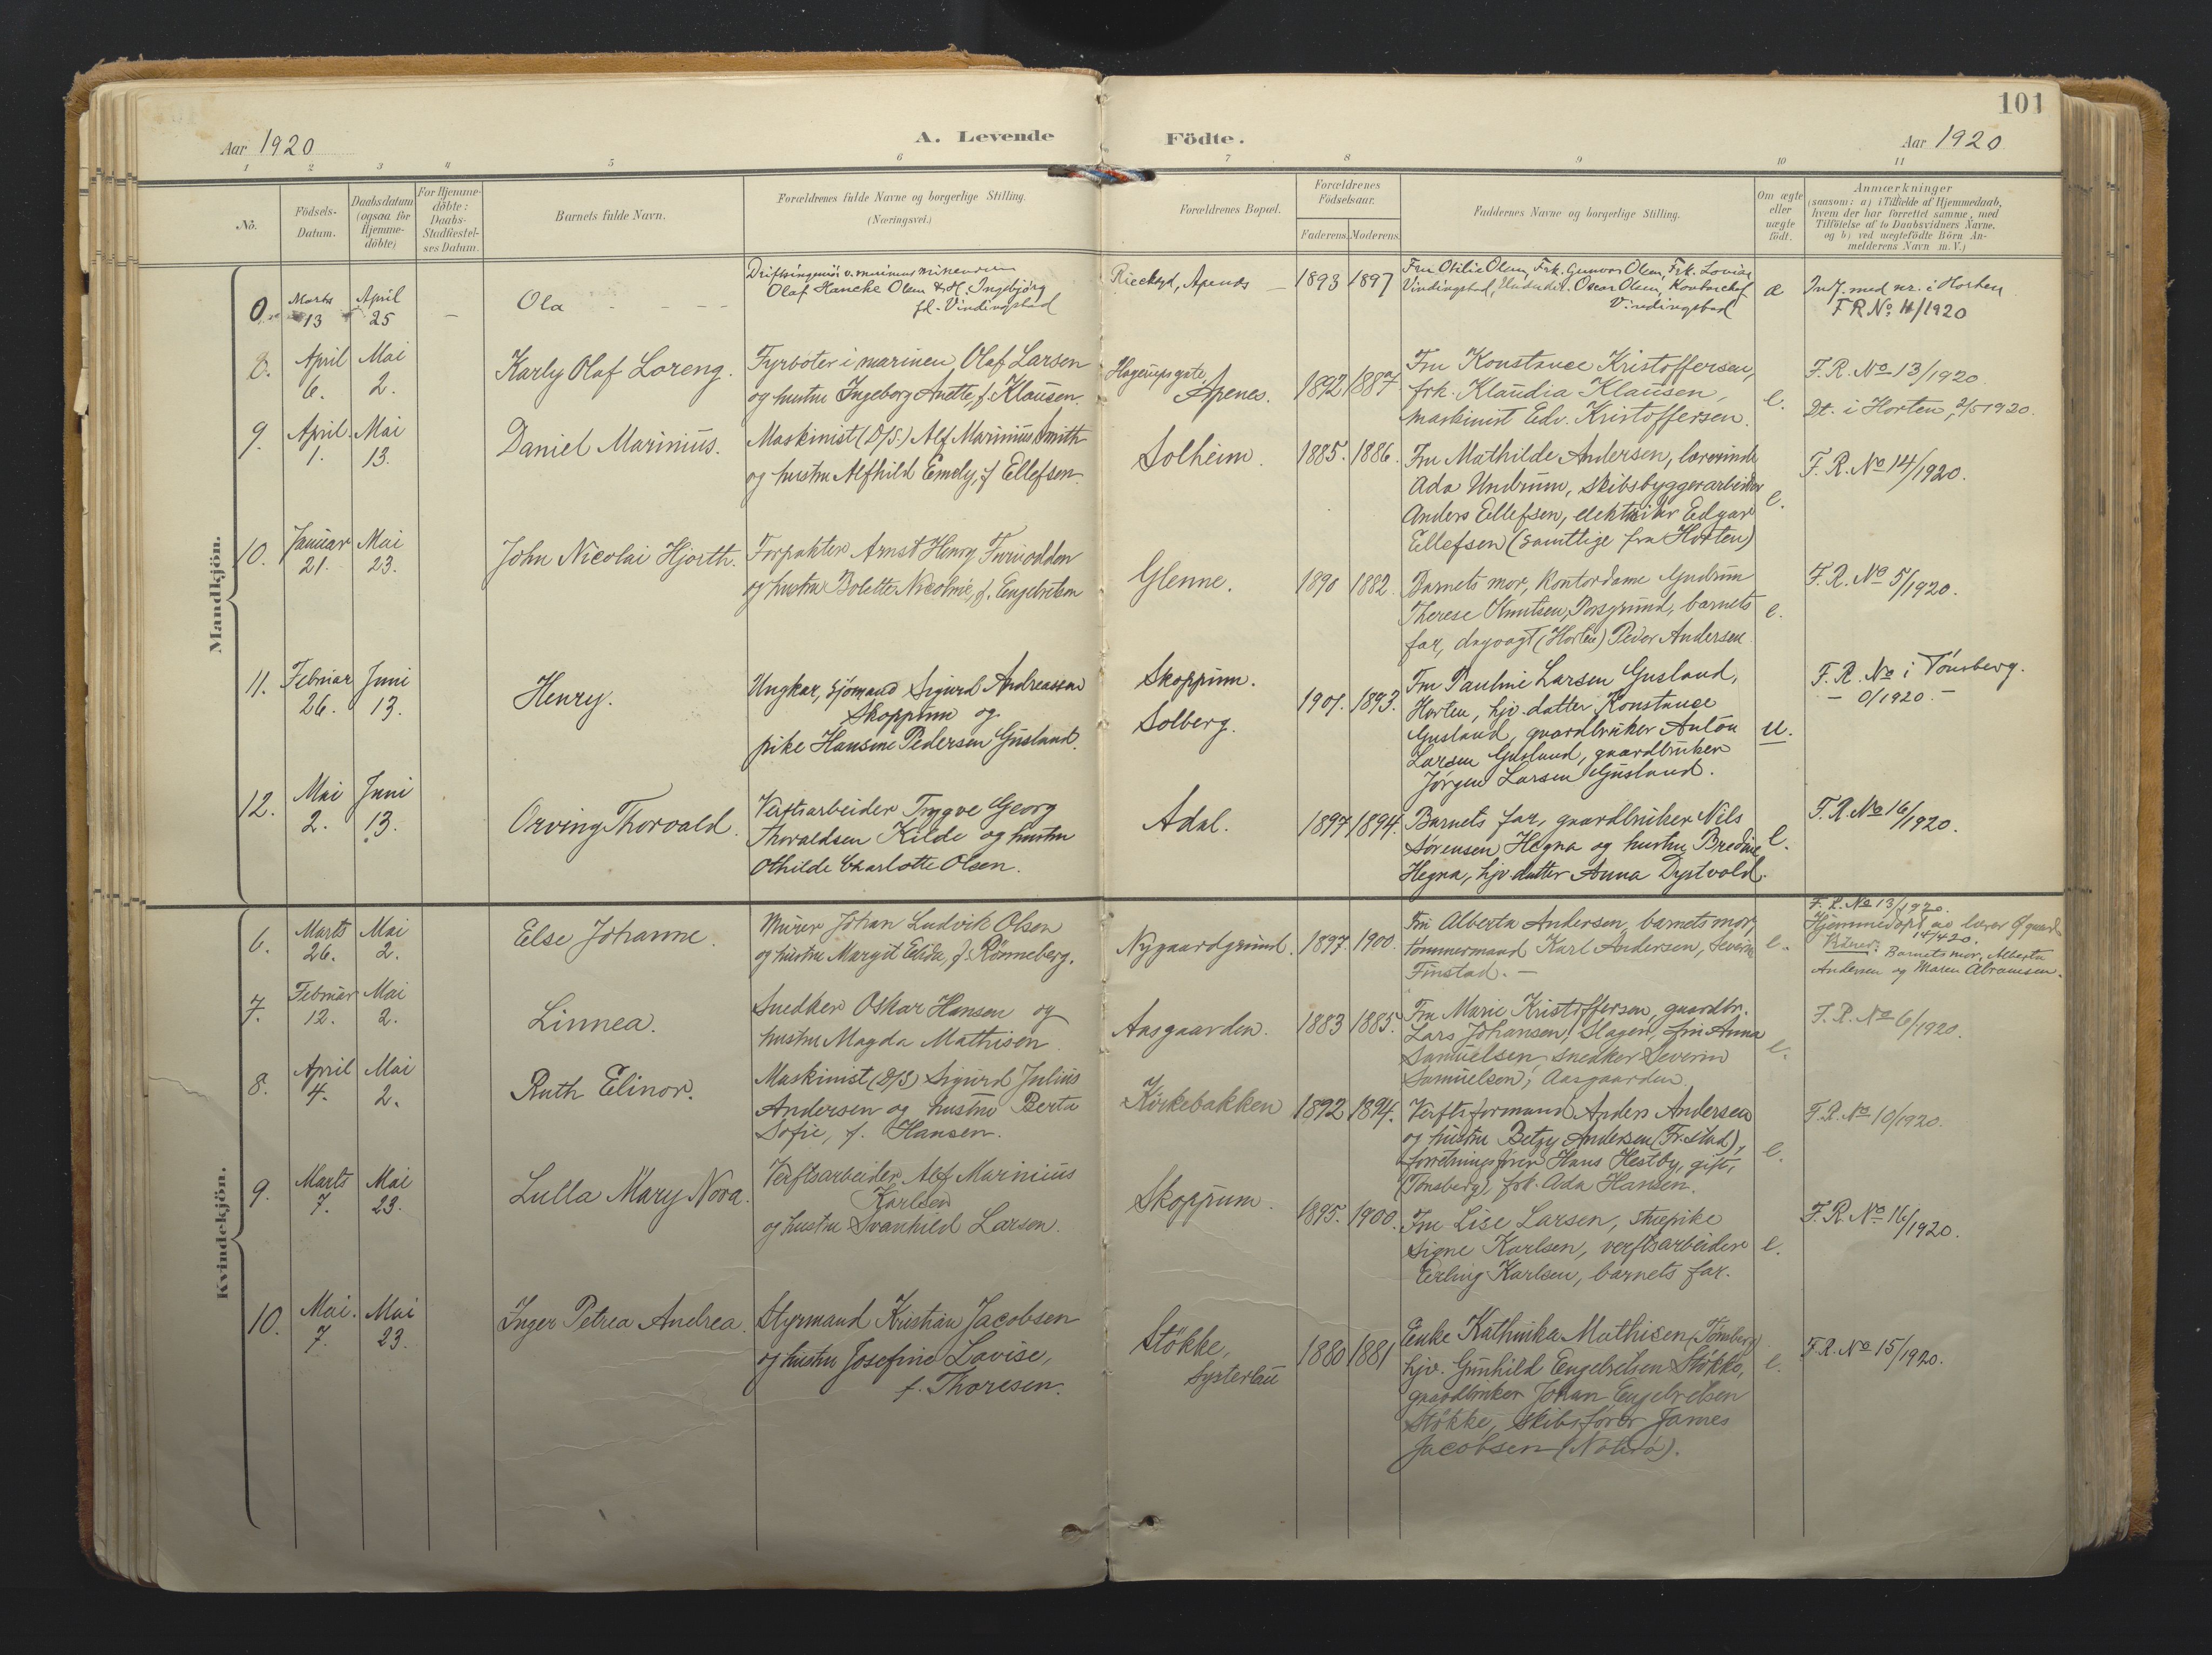 101
Aar 1920
A. Levende Fødte.
Aar 1920
1 2 3 4 5 6 7 8 9 10 11
No.
Fødsels-
Datum.
Daabsdatum
(ogsaa for
Hjemme-
døbte)
For Hjemme-
døbte:
Daabs-
Stadfæstel-
ses Datum.
Barnets fulde Navn.
Forældrenes fulde Navne og borgerlige Stilling.
(Næringsvei.)
Forældrenes Bopæl.
Forældrenes
Fødselsaar.
Faderens. Moderens.
Faddernes Navne og borgerlige Stilling.
Om ægte
eller
uægte
født.
Anmærkninger
(saasom: a) i Tilfælde af Hjemmedaab,
hvem der har forrettet samme, med
Tilføielse af to Daabsvidners Navne.
og b) ved uægtefødte Børn An-
melderens Navn m. V.)
Mandkjön.
0. Marts 13 April 25 — Ola
Driftsingeniør v. marinens
Olaf Hancke Olsen & H. Ingebjörg
fd. Vindingstad
Apenes 1893 1897
Fru Otilie Olsen, Frk. Gunvor Olsen, Frk. Lovise
Vindingstad, Oscar Olsen, Kontorchef
Vindingstad
æ
Indf. med nr. i Horten
F R No. 11/1920
8. April 6. Mai 2. Karly Olaf Loreng.
Fyrbøter i marinen, Olaf Larsen
og hustru Ingeborg Anette, f. Klausen.
Hagerupsgate,
Apenes. 1892 1887
Fru Konstance Kristoffersen,
frk. Klaudia Klausen,
maskinist Edv. Kristoffersen.
e.
F. R. No 13/1920.
Dt. i Horten, 2/5 1920.
9. April 1. Mai 13. Daniel Marinius.
Maskinist (D/S.) Alf Marinius Smith
og hustru Alfhild Emely, f. Ellefsen.
Solheim. 1885. 1886.
Fru Mathilde Andersen, lærerinde
Ada Undrum, skibsbyggerarbeider
Anders Ellefsen, elektriker Edgar
Ellefsen (samtlige fra Horten)
e.
F. R. No 14/1920.
10. Januar 21. Mai 23. John Nicolai Hjorth.
Forpakter Arnst Henry Furuodden
og hustru Bolette Nicoline, f. Engebretsen
Glenne. 1890 1882.
Barnets mor, kontordame Gudrun
Therese Knutsen, Porsgrund, barnets
far, dagvagt (Horten) Peder Andersen.
e.
F. R. No 5/1920.
11. Februar 26. Juni 13. Henry.
Ungkar, sjømand Sigurd Andreassen
Skoppum og
pike Hansine Pedersen Gusland.
Skoppum.
Solberg.
1901. 1893.
Fru Pauline Larsen Gusland,
Horten, hjv. datter Konstance
Gusland, gaardbruker Anton
Larsen Gusland, gaardbruker
Jørgen Larsen Gusland.
u.
F. R. No i Tönsberg.
— 0/1920. —
12. Mai 2. Juni 13. Orving Thorvald.
Verftsarbeider Tryggve Georg
Thorvaldsen Kilde og hustru
Othilde Charlotte Olsen.
Adal. 1897 1894.
Barnets far, gaardbruker Nils
Sørensen Hegna og hustru Bredine
Hegna, hjv. datter Anna Dystvold.
e.
F. R. No 16/1920.
Kvindekjön.
6. Marts 26. Mai 2. Else Johanne.
Murer Johan Ludvik Olsen
og hustru Margit Elida, f. Rönneberg.
Nygaardgrund. 1897. 1900.
Fru Alberta Andersen, barnets mor,
tømmermand Karl Andersen, Severin
Finstad. —
e.
F. R. No 13/1920.
Hjemmedøpt av lærer
14/4 20.
Barnets mor, Alberta
Andersen og Maren Abramsen.
7. Februar 12. Mai 2. Linnea.
Snedker Oskar Hansen og
hustru Magda Mathisen
Aasgaarden. 1883 1885.
Fru Marie Kristoffersen, gaardbr.
Lars Johansen, Slagen, fru Anna
Samuelsen, snedker Severin
Samuelsen, Aasgaarden.
e.
F. R. No 6/1920.
8. April 4. Mai 2. Ruth Elinor.
Maskinist (D/S) Sigurd Julius
Andersen og hustru Berta
Sofie, f. Hansen.
Kirkebakken 1892 1894.
Verftsformand Anders Andersen
og hustru Betzy Andersen (Fr.stad),
forretningsfører Hans Hestby, gift,
(Tønsberg), frk. Ada Hansen.
e.
F. R. No 10/1920.
9. Marts 7. Mai 23. Lulla Mary Nora.
Verftsarbeider Alf Marinius
Karlsen
og hustru Svanhild Larsen.
Skoppum. 1895. 1900.
Fru Lise Larsen, stuepike
Signe Karlsen, verftsarbeider
Erling Karlsen, barnets far.
e.
F. R. No 16/1920.
10. Mai. 7. Mai 23. Inger Petrea Andrea.
Styrmand Kristian Jacobsen
og hustru Josefine Lovise,
f. Thoresen.
Støkke, 1880 1881
Enke Kathinka Mathisen (Tønsberg)
hjv. Gunhild Engebretsen Støkke,
gaardbruker Johan Engebretsen
Støkke, skibsfører James
Jacobsen (Nøterø).
e.
F. R. No 15/1920.